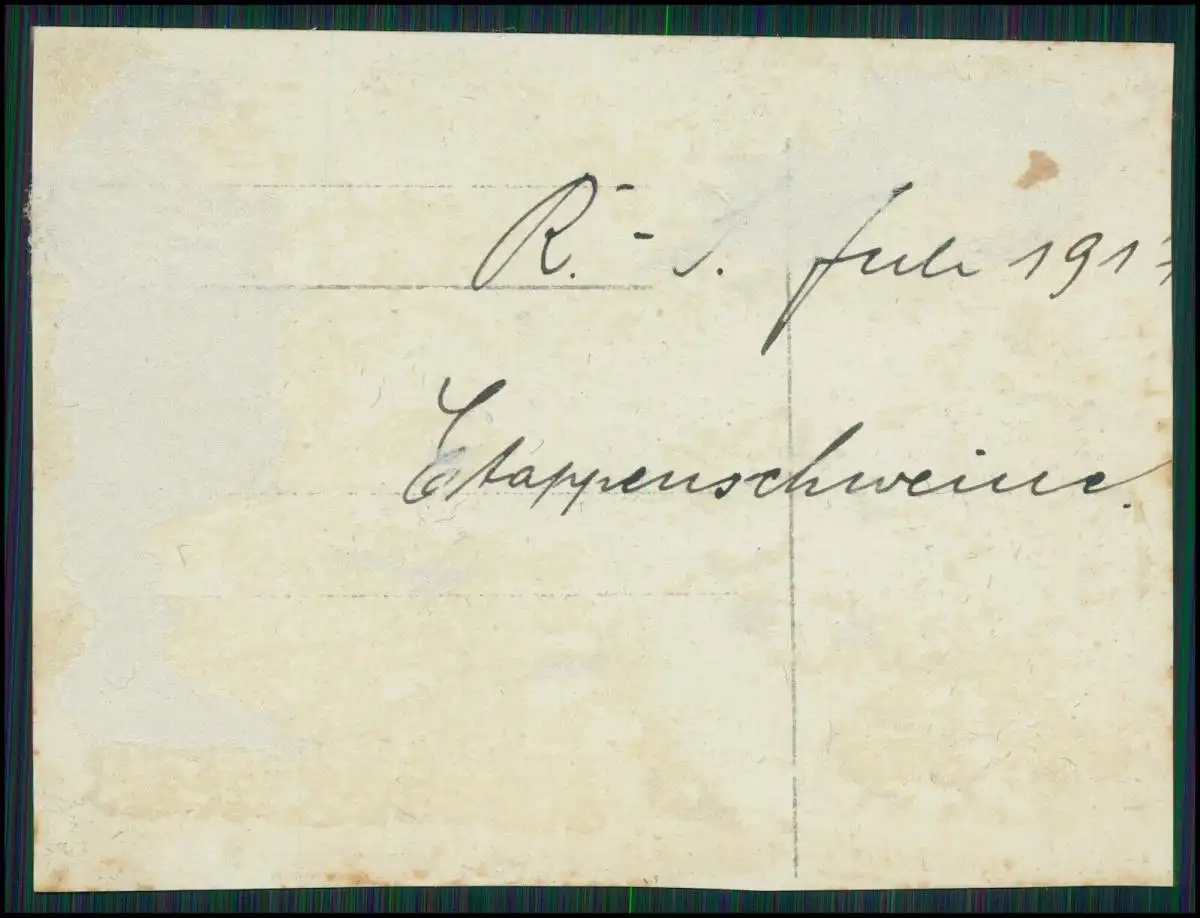 R.- S. Juli 1917
Etappenschweine.